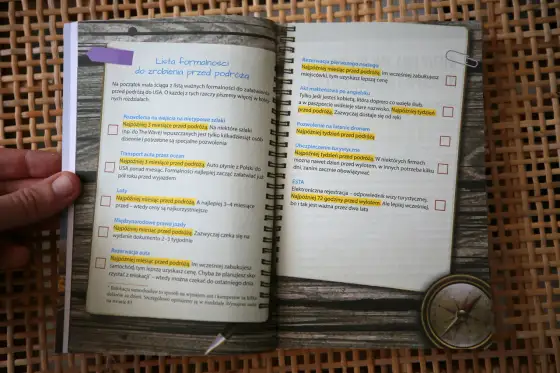 Lista formalności
do zrobienia przed podróżą
Na początek mała ściąga z listą ważnych formalności do załatwienia
przed podróżą do USA. O każdej z tych rzeczy piszemy więcej w kolej-
nych rozdziałach.
Pozwolenia na wejście na nietypowe szlaki
Najpóźniej 2 miesiące przed podróżą. Na niektóre szlaki
(np. do The Wave) wpuszczanych jest tylko kilkadziesiąt osób
dziennie i potrzebne są specjalne pozwolenia
Transport auta przez ocean
Najpóźniej 3 miesiące przed podróżą. Auto płynie z Polski do
USA ponad miesiąc. Formalności najlepiej zacząć załatwiać już
pół roku przed wyjazdem
Loty
Najpóźniej miesiąc przed podróżą. A najlepiej 3-4 miesiące
przed – wtedy ceny są najkorzystniejsze
Międzynarodowe prawo jazdy
Najpóźniej miesiąc przed podróżą. Zazwyczaj czeka się na
wydanie dokumentu 2-3 tygodnie
Rezerwacja auta
Najpóźniej miesiąc przed podróżą. Im wcześniej zabukujesz
samochód, tym lepszą uzyskasz cenę. Chyba że planujesz sko-
rzystać z relokacji* – wtedy możesz czekać do ostatniego dnia
Rezerwacja pierwszego noclegu
Najpóźniej miesiąc przed podróżą. Im wcześniej zabukujesz
miejscówkę, tym uzyskasz lepszą cenę
Akt małżeństwa po angielsku
Tylko jeśli jesteś kobietą, która dopiero co wzięła ślub,
a w paszporcie widnieje stare nazwisko. Najpóźniej tydzień
przed podróżą. Zazwyczaj dostaje się od ręki
Pozwolenie na latanie dronem
Najpóźniej tydzień przed podróżą
Ubezpieczenie turystyczne
Najpóźniej tydzień przed podróżą. W niektórych firmach
można nawet dzień przed wylotem, w innych potrzeba kilku
dni, zanim zacznie obowiązywać
ESTA
Elektroniczna rejestracja – odpowiednik wizy turystycznej.
Najpóźniej 72 godziny przed wylotem. Ale lepiej wcześniej,
bo i tak jest ważna przez dwa lata